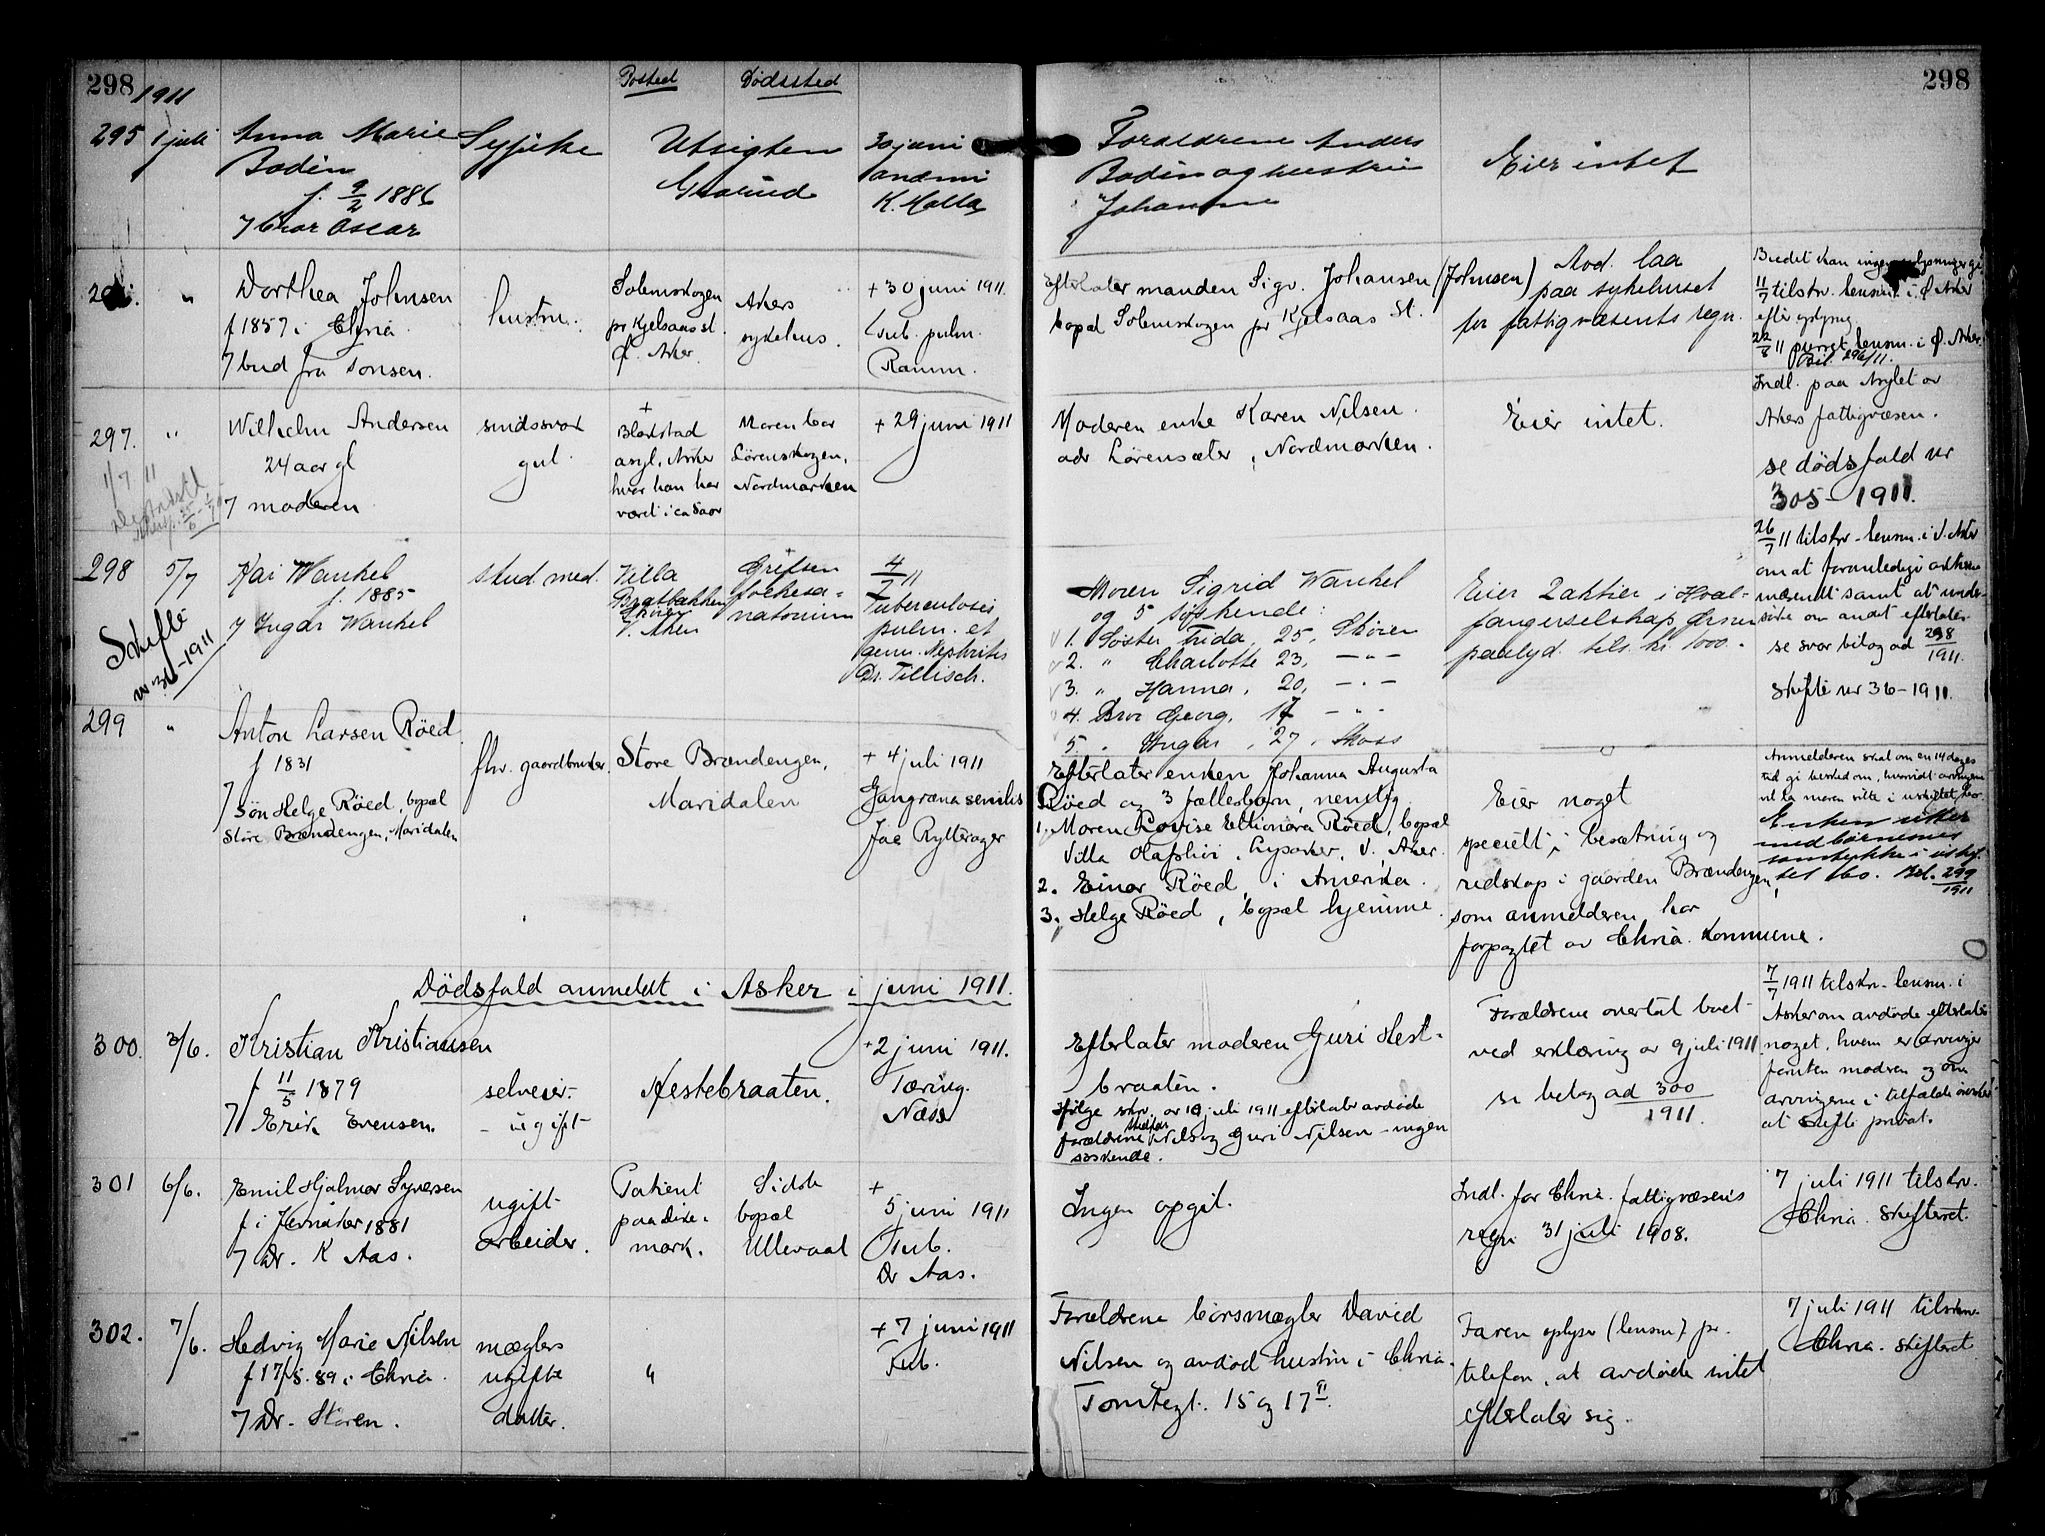 298
1911
Bosted
Dødssted
298
295
1 juli
Anna Marie
Bodin
f. 9/2 1886
7 bror Oscar
Sypike
Utsigten
Grorud
30 juni
anæmi
K. Motta
Forældrene Anders
Bodin og hustru
Johanne
Eier intet
"
Dorthea Johnsen
f 1857 i Chria
7 bud fra Tonsen.
hustru.
Solemskogen
pr Kjelsaas st.
Ø. Aker.
Akers
sykehus.
+ 30 juni 1911.
Tub. pulm.
Ramm.
Efterlater manden Sigv. Johansen (Johnsen)
bopæl Solemskogen pr Kjelsaas St.
Avd. laa
paa sykehuset
for fattigvæsenets regn.
Budet kan ingen oplysninger gi
11/7 tilskr. lensm. i Ø. Aker
efter oplysng
22/8 11 purret lensm. i Ø. Aker.
Bil. 296/11.
297.
"
1/7 11
Wilhelm Andersen
24 aar gl
7 moderen
sindssvak
gut
+
Blakstad
asyl, Asker
hvor han har
været i ca 5 aar
Moren bor
Sørenskogen,
Nordmarken
+ 29 juni 1911
Moderen enke Karen Nilsen.
adr Lørensæter, Nordmarken.
Eier intet.
Indl. paa Asylet av
Akers fattigvæsen.
se dødsfald nr
305 - 1911.
298
5/7
Skifte
nr 36 - 1911
Kai Wankel
f. 1885
7 Yngar Wankel
stud. med.
Villa
Bratbakken
Skøien
V. Aker
Grefsen
folkesa-
natorium
4/7 11
Tuberculosis
pulm. et
Nephritis
Dr. Tillisch.
Moren Sigrid Wankel
og 5 søskende:
1. Søster Frida, 25, Skøien
2. " Charlotte 23, - " -
3. " Hanna, 20, - " -
4. Bror Georg, 17 - " -
5. " Yngar, 27, Moss
Eier 2 aktier i Hval-
fangerselskap
paalyd. tils. kr. 1000.-
26/7 11 tilskr. lensm. i V. Aker
om at foranledige
nævndt samt at under-
søke om andet efterlates
se svar bilag ad 298/1911.
Skifte nr 36 - 1911.
299
"
Anton Larsen Röed
f 1831
7 søn Helge Röed, bopæl
Store Brændengen, Maridalen
fhv. gaardbruker.
Store Brændengen,
Maridalen
+ 4 juli 1911
Gangræna senilis
Jac Rytterager
Efterlater enken Johanna Augusta
Röed og 3 fællesbarn, nemlig
1. Moren Lovise Ellionora Röed, bopæl
Villa Olafsli, Lysaker, V. Aker.
2. Einar Röed i Amerika.
3. Helge Röed, bopæl hjemme.
Eier noget
specielt i besætning og
redskap i gaarden Brændengen,
som anmelderen har
forpagtet av Chria. Kommune.
Anmelderen skal om en 14 dages
tid gi besked om, hvorvidt arvingene
vil la moren sitte i uskiftet bo.
Enken sitter
med børnenes
samtykke i uskif-
tet bo. Bil. 299/1911
Dödsfald anmeldt i Asker i juni 1911.
300.
3/6.
Kristian Kristiansen
f 11/5 1879
7 Erik Evensen.
selveier-
- ugift -
Hestebraaten.
+ 2 juni 1911.
Tæring.
Næss
Efterlater moderen Guri Hest-
braaten.
Ifølge skr. av 19 juli 1911 efterlater avdøde
forældrene Nils og Guri Nilsen - ingen
søskende.
Forældrene overtat boet
ved erklæring av 9 juli 1911
se bilag ad 300/1911.
7/7 1911 tilskr. lensm. i
Asker om avdøde efterlater
noget, hvem er arvinger
foruten modren og om
arvingerne i tilfælde ønsker
at skifte privat.
301
6/6.
Emil Hjalmar Syversen
f i Jevnaker 1881
7 Dr. K Aas.
ugift
arbeider.
Patient
paa Dike-
mark.
Sidste
bopæl
Ullevaal
+
5 juni 1911
Tub.
Dr Aas.
Ingen opgit.
Indl. for Chria. fattigvæsens
regn 31 juli 1908.
7 juli 1911 tilskr.
Chria. Skifteret.
302.
7/6.
Hedvig Marie Nilsen
f 17/5. 89 i Chria.
7 Dr. Storen.
mæglers
ugifte
datter.
"
+ 7 juni 1911
Tub.
Forældrene börsmægler David
Nilsen og avdød hustru i Chria.
Tomtegt. 15 og 17 II.
Faren oplyser (lensm) pr.
telefon, at avdøde intet
efterlater sig.
7 juli 1911 tilskr.
Chria. skifteret